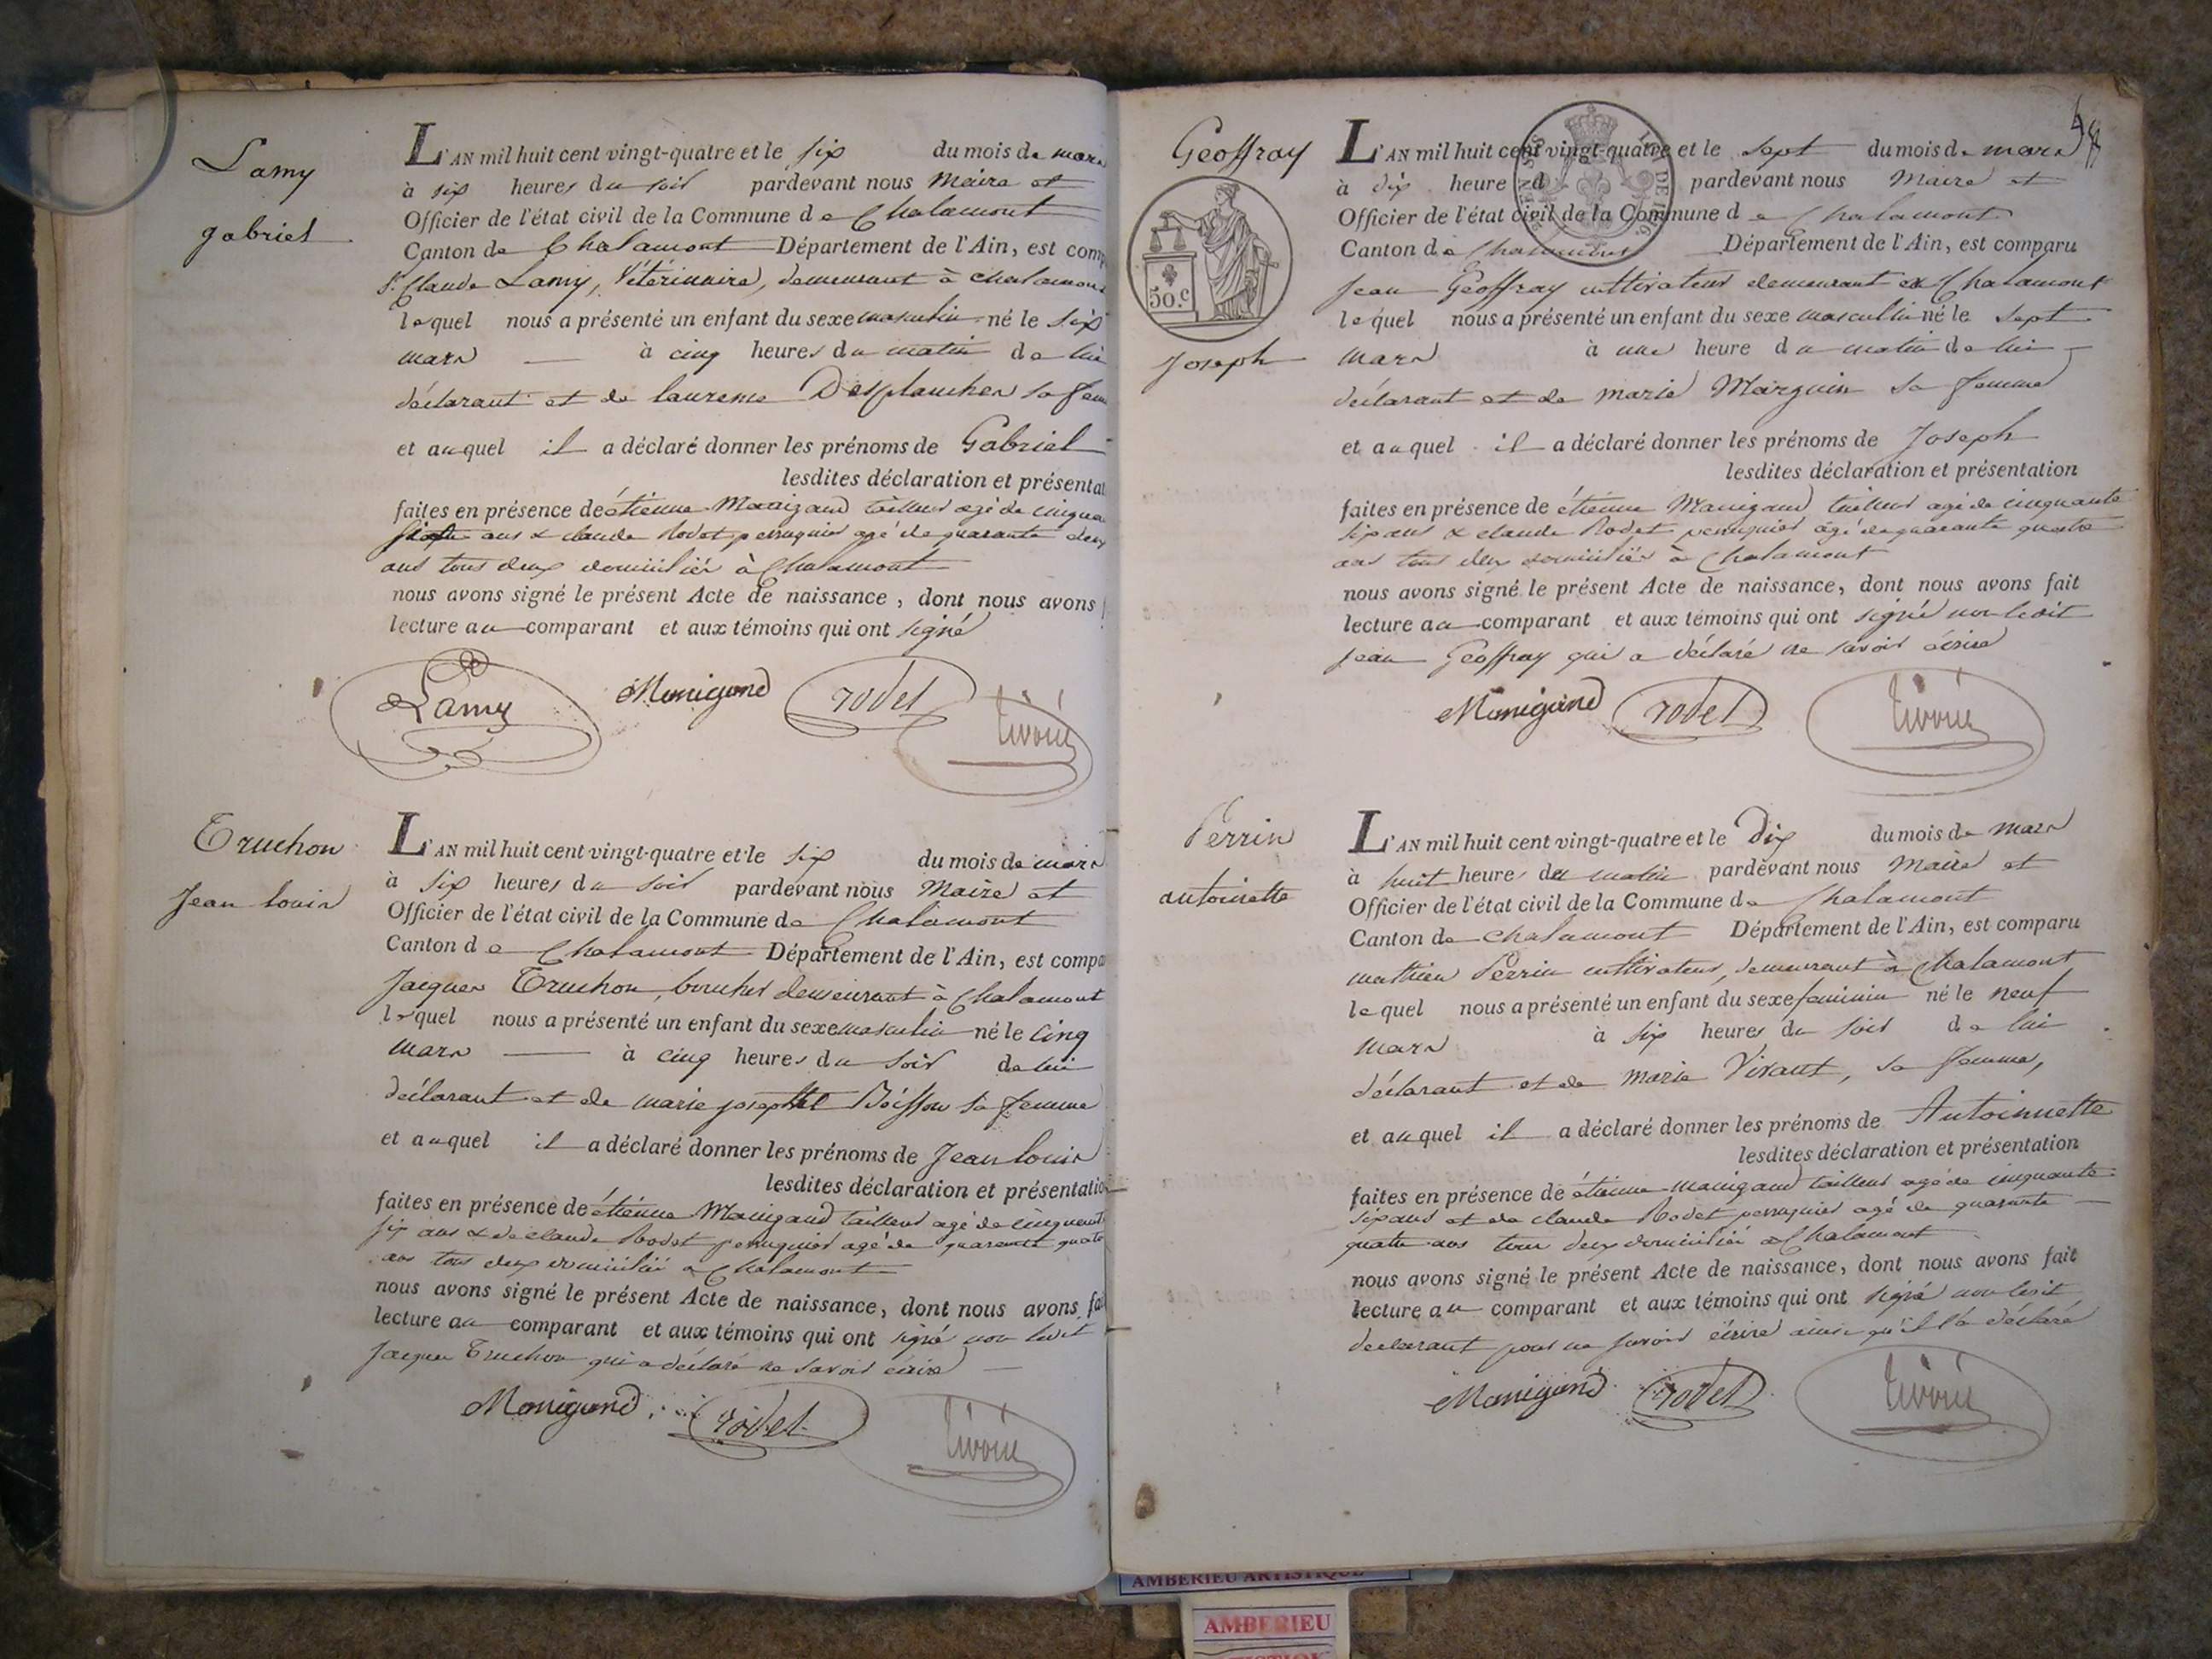 Lamy
gabriel
L'AN mil huit cent vingt-quatre et le six du mois de mars
à six heures du soir pardevant nous Maire et
Officier de l'état civil de la Commune de Chalamont
Canton de Chalamont Département de l'Ain, est comp
Sr Claude Lamy, Vétérinaire, demeurant à chalamont
lequel nous a présenté un enfant du sexe masculin né le six
mars à cinq heures du matin de lui
déclarant et de laurence Desplanches sa fem
et auquel il a déclaré donner les prénoms de Gabriel
lesdites déclaration et présentat
faites en présence de étienne Manigand tailleur agé de cinqua
ans & claude Rodet perruquier agé de quarante deux
ans tous deux domiciliés à Chalamont
nous avons signé le présent Acte de naissance, dont nous avons
lecture au comparant et aux témoins qui ont signé
Lamy Manigand rodet
Truchon
Jean louis
L'AN mil huit cent vingt-quatre et le six du mois de mars
à six heures du soir pardevant nous Maire et
Officier de l'état civil de la Commune de Chalamont
Canton de Chalamont Département de l'Ain, est compa
Jacques Truchon, boucher demeurant à Chalamont
lequel nous a présenté un enfant du sexe masculin né le cinq
mars à cinq heures du soir de lui
déclarant et de marie josephte Boisson sa femme
et auquel il a déclaré donner les prénoms de Jean louis
lesdites déclaration et présentatio
faites en présence de étienne Manigand tailleur agé de cinquante
six ans & de claude Rodet perruquier agé de quarante quatre
ans tous deux domiciliés à Chalamont
nous avons signé le présent Acte de naissance, dont nous avons fai
lecture au comparant et aux témoins qui ont signé non ledit
Jacques Truchon qui a déclaré ne savoir écrire
Manigand rodet
Geoffray
50.c
Joseph
L'AN mil huit cent vingt-quatre et le sept du mois de mars
à dix heure d pardevant nous Maire et
Officier de l'état civil de la Commune de Chalamont
Canton de Chalamont Département de l'Ain, est comparu
jean Geoffray cultivateur demeurant à Chalamont
lequel nous a présenté un enfant du sexe masculin né le sept
mars à une heure du matin de lui
déclarant et de marie Marguin sa femme
et auquel il a déclaré donner les prénoms de Joseph
lesdites déclaration et présentation
faites en présence de étienne Manigand tailleur agé de cinquante
six ans & claude Rodet perruquier âgé de quarante quatre
ans tous deux domiciliés à Chalamont
nous avons signé le présent Acte de naissance, dont nous avons fait
lecture au comparant et aux témoins qui ont signé non ledit
jean Geoffray qui a déclaré ne savoir écrire
Manigand rodet
Perrin
antoinette
L'AN mil huit cent vingt-quatre et le Dix du mois de mars
à huit heures du matin pardevant nous Maire et
Officier de l'état civil de la Commune de Chalamont
Canton de chalamont Département de l'Ain, est comparu
mathieu Perrin cultivateur, demeurant à Chalamont
lequel nous a présenté un enfant du sexe feminin né le neuf
mars à six heures du soir de lui
déclarant et de marie Vivant, sa femme,
et auquel il a déclaré donner les prénoms de Antoinette
lesdites déclaration et présentation
faites en présence de étienne manigand tailleur agé de cinquante
six ans et de claude Rodet perruquier agé de quarante
quatre ans tous deux domiciliés à Chalamont
nous avons signé le présent Acte de naissance, dont nous avons fait
lecture au comparant et aux témoins qui ont signé non ledit
declarant pour ne savoir écrire ainsi qu'il l'a déclaré
Manigand rodet
AMBERIEU ARTISTIQUE
AMBERIEU